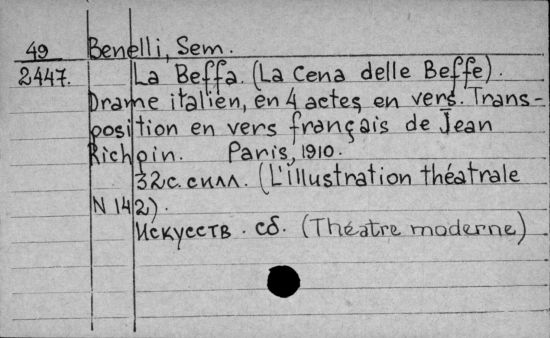 49 Benelli, Sem.
2447. La Beffa. (La Cena delle Beffe).
Drame italien, en 4 actes, en vers. Trans-
position en vers français de Jean
Richpin. Paris, 1910.
32c. силл. (L'illustration théatrale
N 142).
Искусств. сб. (Théatre moderne)